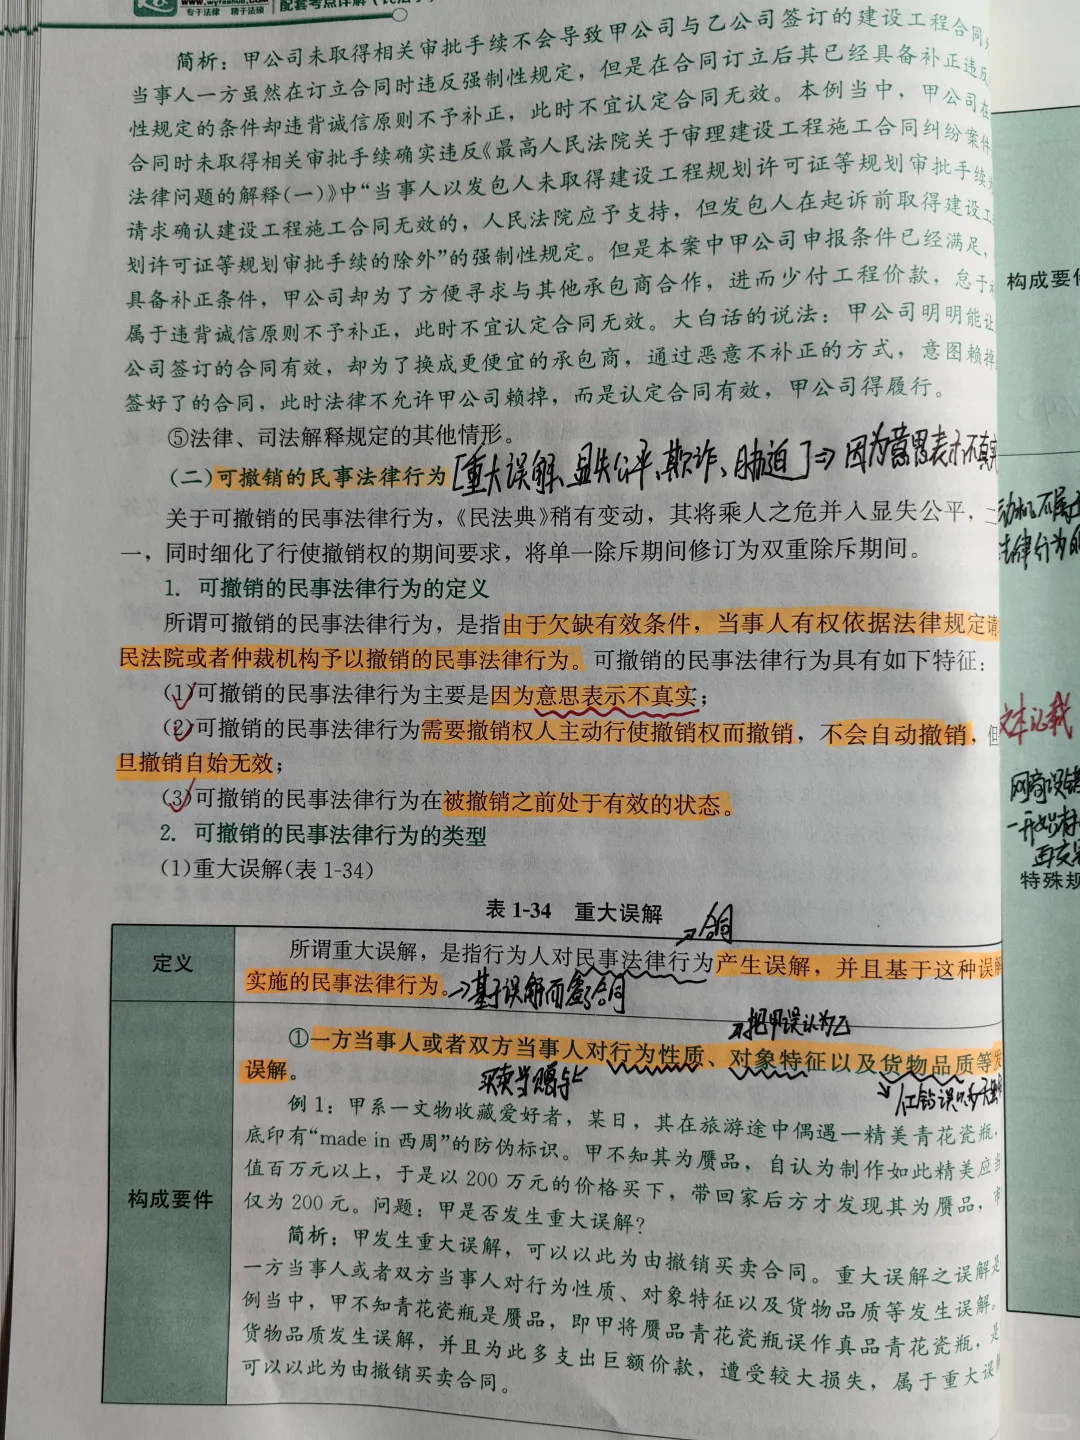 www.wyfashuo.com
专于法律 精于法硕
配套考点详解
简析：甲公司未取得相关审批手续不会导致甲公司与乙公司签订的建设工程合同
当事人一方虽然在订立合同时违反强制性规定，但是在合同订立后其已经具备补正违反
性规定的条件却违背诚信原则不予补正，此时不宜认定合同无效。本例当中，甲公司在
合同时未取得相关审批手续确实违反《最高人民法院关于审理建设工程施工合同纠纷案件
法律问题的解释(一)》中“当事人以发包人未取得建设工程规划许可证等规划审批手续
请求确认建设工程施工合同无效的，人民法院应予支持，但发包人在起诉前取得建设工
划许可证等规划审批手续的除外”的强制性规定。但是本案中甲公司申报条件已经满足，
具备补正条件，甲公司却为了方便寻求与其他承包商合作，进而少付工程价款，怠于
属于违背诚信原则不予补正，此时不宜认定合同无效。大白话的说法：甲公司明明能让
公司签订的合同有效，却为了换成更便宜的承包商，通过恶意不补正的方式，意图赖掉
签好了的合同，此时法律不允许甲公司赖掉，而是认定合同有效，甲公司得履行。
⑤法律、司法解释规定的其他情形。
(二)可撤销的民事法律行为 [重大误解、显失公平、欺诈、胁迫]⇒因为意思表示不真实
关于可撤销的民事法律行为，《民法典》稍有变动，其将乘人之危并入显失公平，二
一，同时细化了行使撤销权的期间要求，将单一除斥期间修订为双重除斥期间。
1. 可撤销的民事法律行为的定义
所谓可撤销的民事法律行为，是指由于欠缺有效条件，当事人有权依据法律规定请
民法院或者仲裁机构予以撤销的民事法律行为。可撤销的民事法律行为具有如下特征：
(1)可撤销的民事法律行为主要是因为意思表示不真实；
(2)可撤销的民事法律行为需要撤销权人主动行使撤销权而撤销，不会自动撤销，但
旦撤销自始无效；
(3)可撤销的民事法律行为在被撤销之前处于有效的状态。
2. 可撤销的民事法律行为的类型
(1)重大误解(表 1-34)
表 1-34 重大误解
→合同
定义
所谓重大误解，是指行为人对民事法律行为产生误解，并且基于这种误解
实施的民事法律行为。→基于误解而签了合同
→把甲误认为乙
构成要件
①一方当事人或者双方当事人对行为性质、对象特征以及货物品质等发
误解。
买卖当赠与
例 1：甲系一文物收藏爱好者，某日，其在旅游途中偶遇一精美青花瓷瓶，
底印有“made in 西周”的防伪标识。甲不知其为赝品，自认为制作如此精美应当
值百万元以上，于是以 200 万元的价格买下，带回家后方才发现其为赝品，市
仅为 200 元。问题：甲是否发生重大误解？
简析：甲发生重大误解，可以以此为由撤销买卖合同。重大误解之误解是
一方当事人或者双方当事人对行为性质、对象特征以及货物品质等发生误解。
例当中，甲不知青花瓷瓶是赝品，即甲将赝品青花瓷瓶误作真品青花瓷瓶，是
货物品质发生误解，并且为此多支出巨额价款，遭受较大损失，属于重大误解
可以以此为由撤销买卖合同。
构成要件
动机不属于
法律行为的
文本记载
特殊规